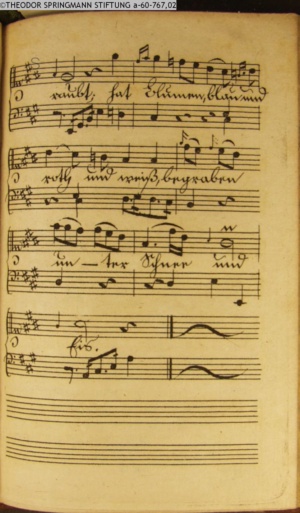 ©THEODOR SPRINGMANN STIFTUNG a-60-767,02
raubt; hat Blumen, blau und
roth und weiß, begraben
un-ter Schnee und
Eis.